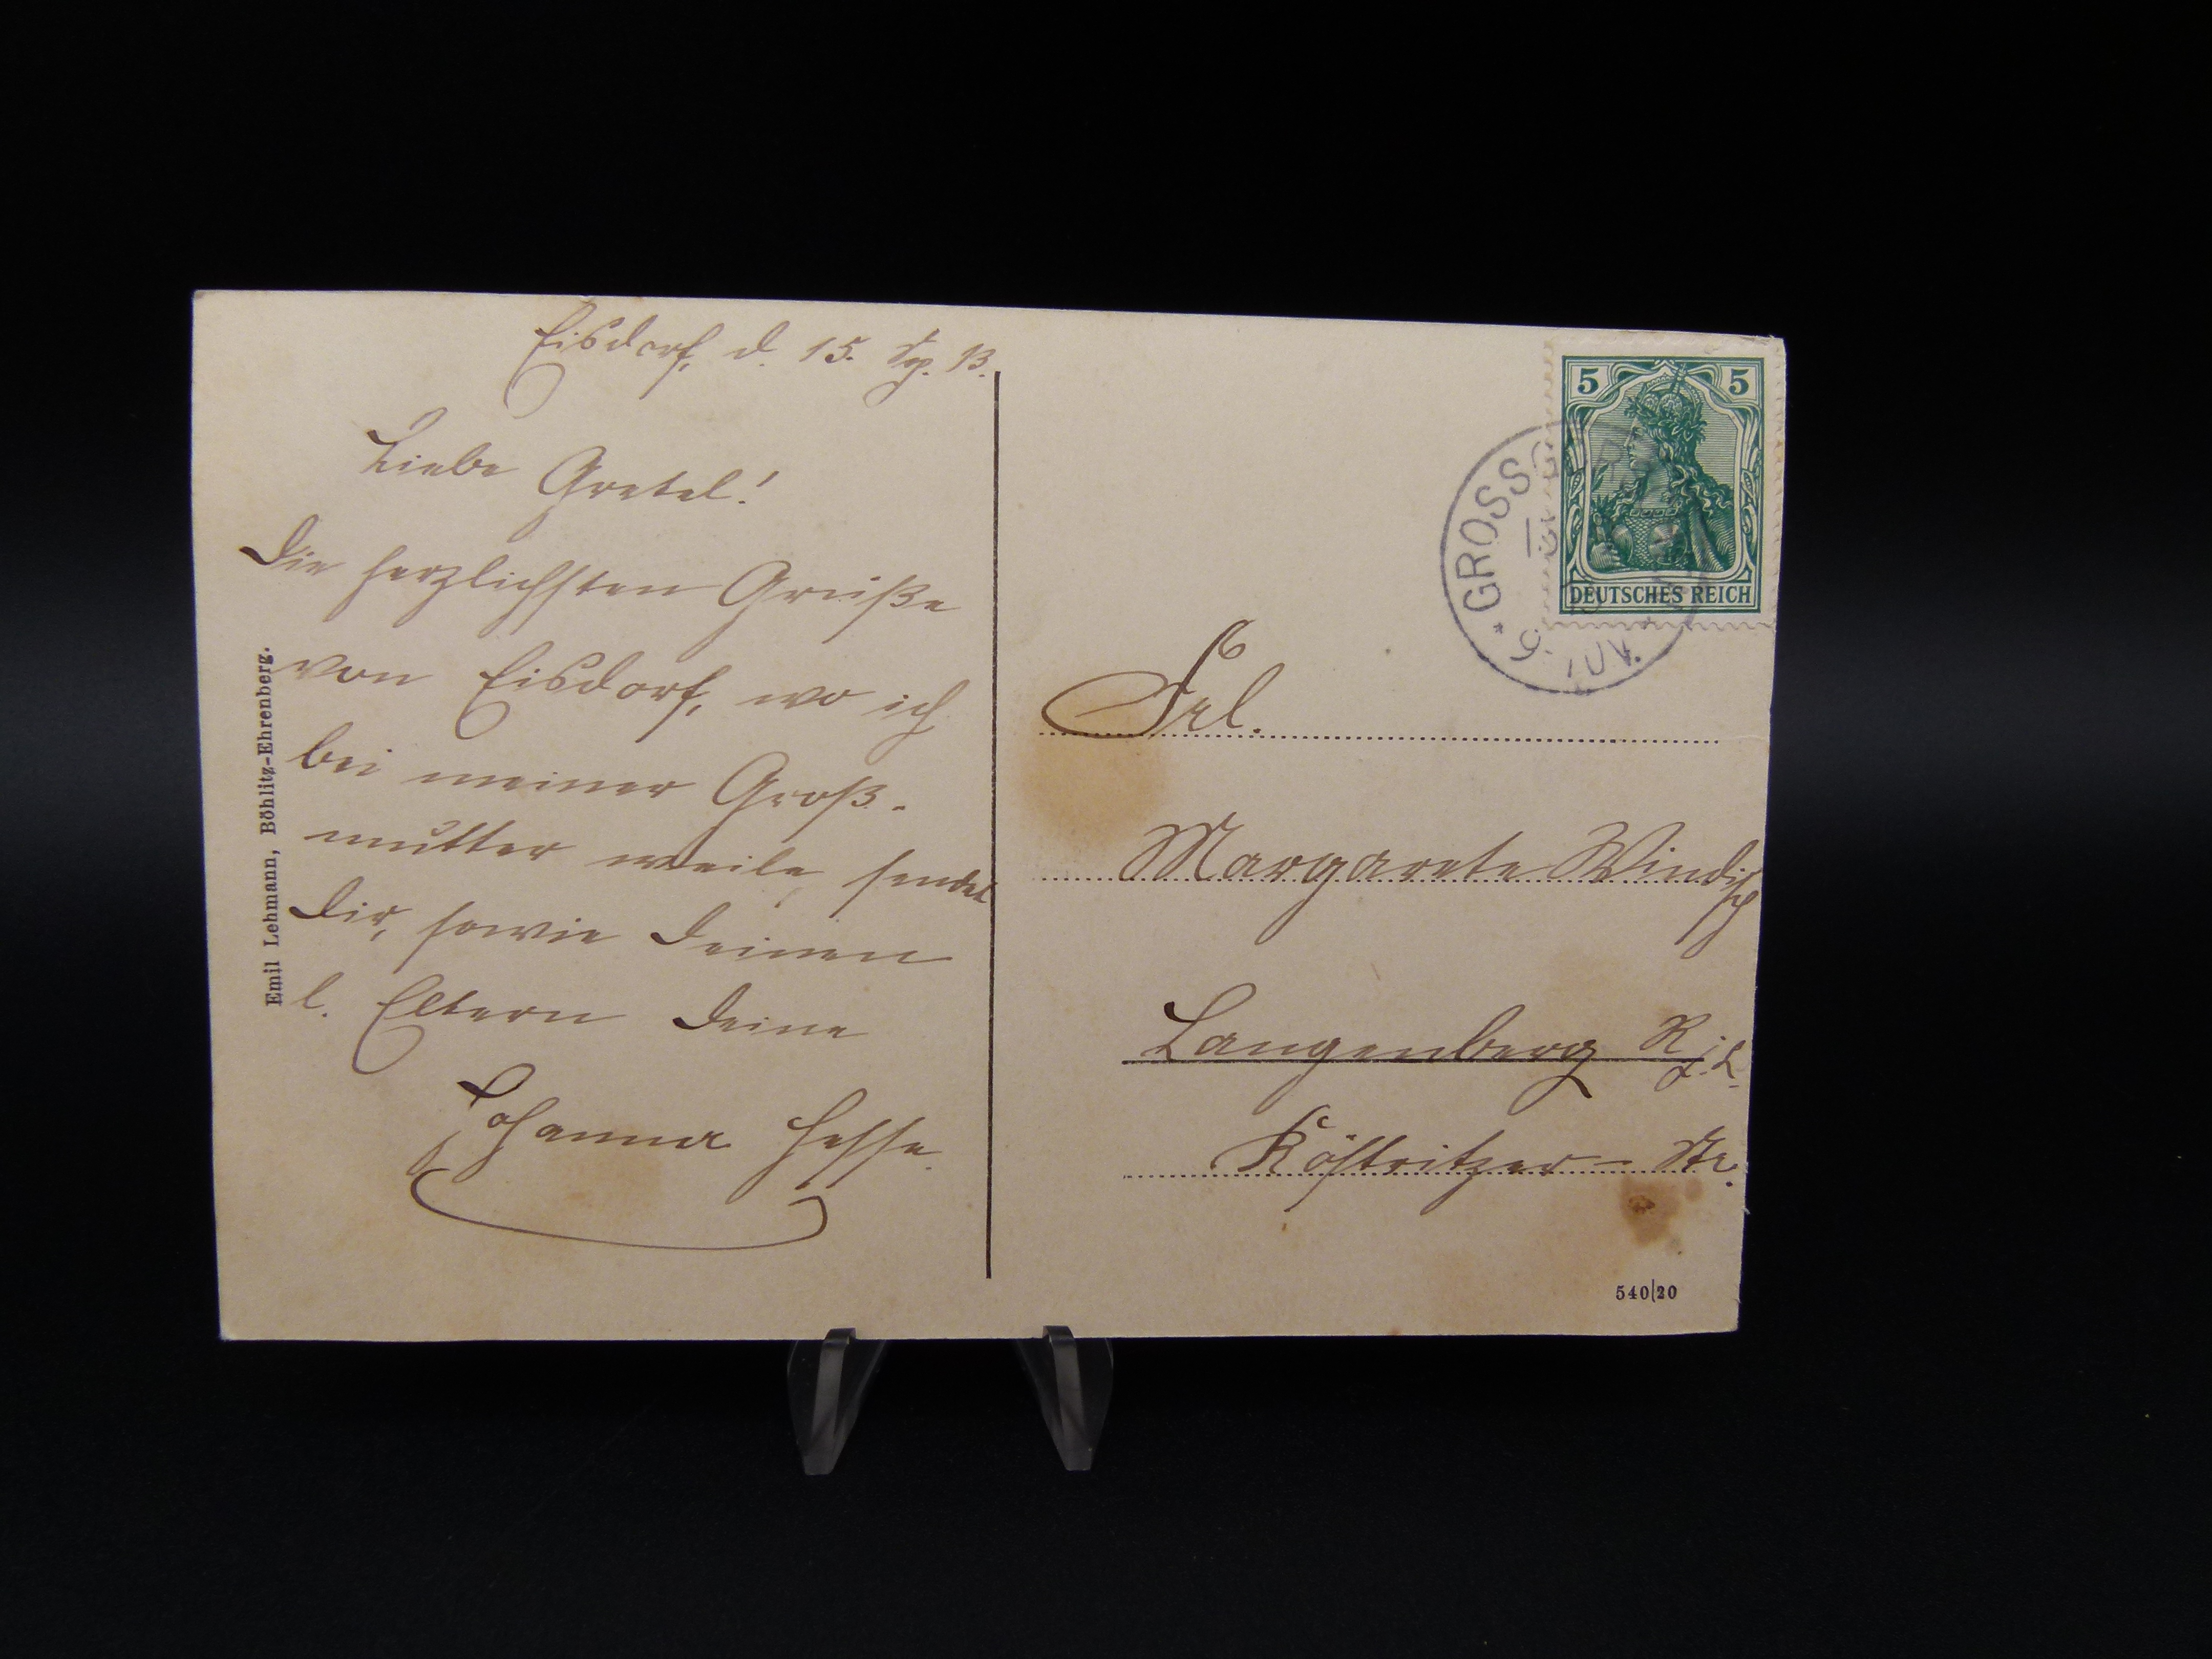 Eisdorf, d. 15. 13.
Liebe Gretel!
Die herzlichsten Grüße
von Eisdorf, wo ich
bei meiner Groß-
mutter weile, sendet
Dir, sowie Deinen
l. Eltern Deine
Johanna Hesse.
Emil Lehmann, Böhlitz-Ehrenberg.
5 5
DEUTSCHES REICH
* GROSSG
9-10V.
Frl.
Margarete Windisch
Langenberg R.j.L.
Köstritzer-Str.
540/20